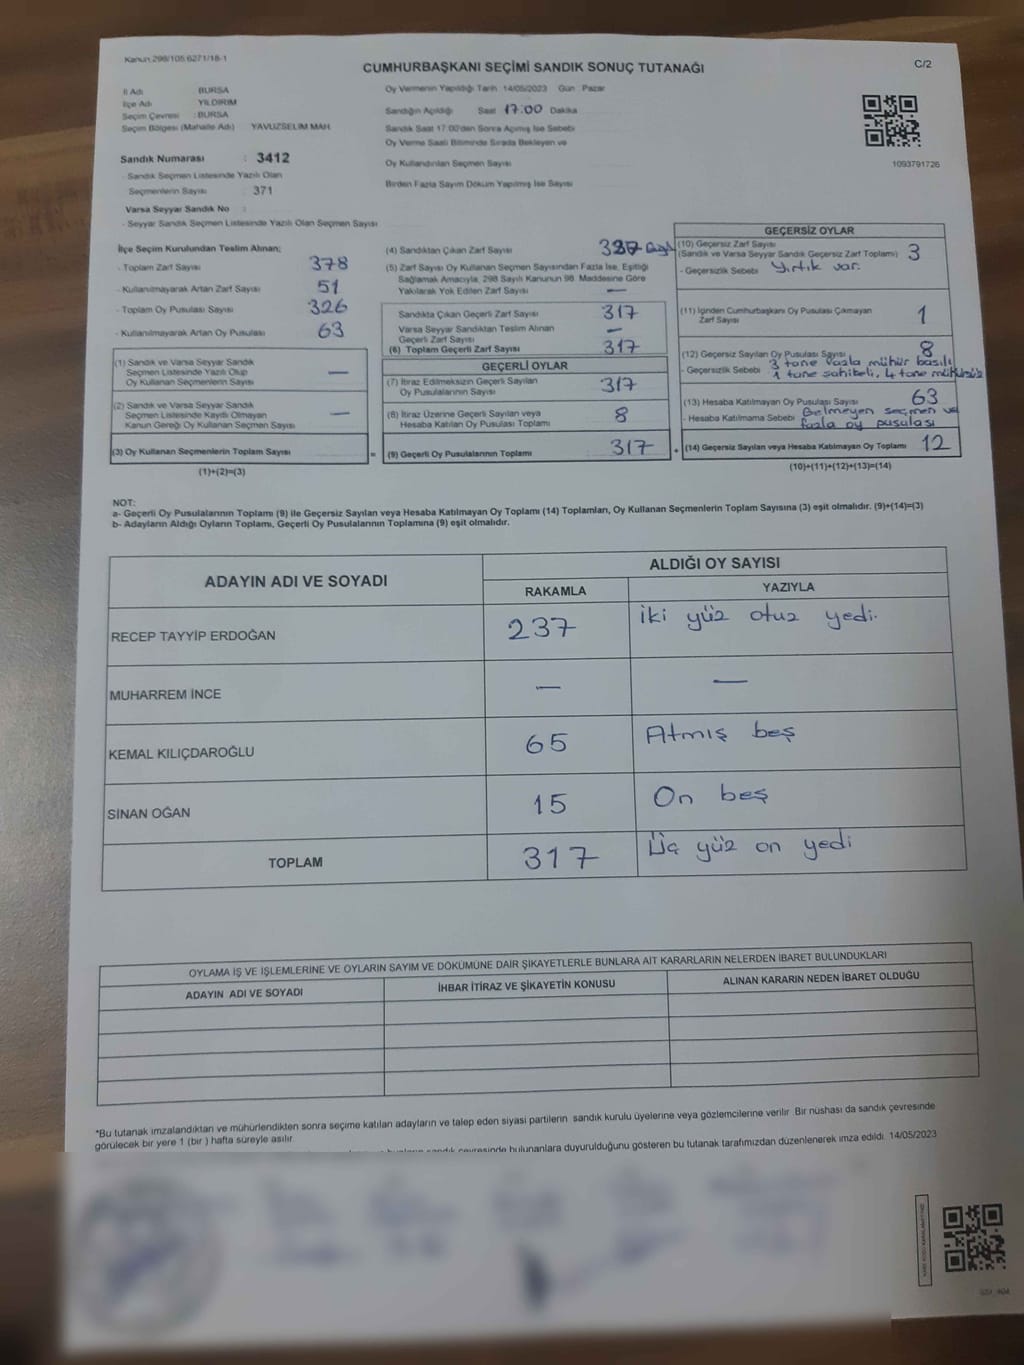 Kanun 298/105 6271/18-1
CUMHURBAŞKANI SEÇİMİ SANDIK SONUÇ TUTANAĞI
C/2
İl Adı BURSA
İlçe Adı YILDIRIM
Seçim Çevresi : BURSA
Seçim Bölgesi (Mahalle Adı) YAVUZSELİM MAH.
Sandık Numarası : 3412
- Sandık Seçmen Listesinde Yazılı Olan
Seçmenlerin Sayısı : 371
Varsa Seyyar Sandık No :
- Seyyar Sandık Seçmen Listesinde Yazılı Olan Seçmen Sayısı
Oy Vermenin Yapıldığı Tarih 14/05/2023 Gün Pazar
Sandığın Açıldığı Saat 17:00 Dakika
Sandık Saat 17:00'den Sonra Açılmış İse Sebebi
Oy Verme Saati Bitiminde Sırada Bekleyen ve
Oy Kullandırılan Seçmen Sayısı
Birden Fazla Sayım Döküm Yapılmış İse Sayısı
1093791726
İlçe Seçim Kurulundan Teslim Alınan;
- Toplam Zarf Sayısı 378
- Kullanılmayarak Artan Zarf Sayısı 51
- Toplam Oy Pusulası Sayısı 326
- Kullanılmayarak Artan Oy Pusulası 63
(1) Sandık ve Varsa Seyyar Sandık
Seçmen Listesinde Yazılı Olup
Oy Kullanan Seçmenlerin Sayısı —
(2) Sandık ve Varsa Seyyar Sandık
Seçmen Listesinde Kayıtlı Olmayan
Kanun Gereği Oy Kullanan Seçmen Sayısı —
(3) Oy Kullanan Seçmenlerin Toplam Sayısı
(1)+(2)=(3)
(4) Sandıktan Çıkan Zarf Sayısı
(5) Zarf Sayısı Oy Kullanan Seçmen Sayısından Fazla İse, Eşitliği
Sağlamak Amacıyla, 298 Sayılı Kanunun 98. Maddesine Göre
Yakılarak Yok Edilen Zarf Sayısı —
Sandıkta Çıkan Geçerli Zarf Sayısı 317
Varsa Seyyar Sandıktan Teslim Alınan
Geçerli Zarf Sayısı —
(6) Toplam Geçerli Zarf Sayısı 317
GEÇERLİ OYLAR
(7) İtiraz Edilmeksizin Geçerli Sayılan
Oy Pusulalarının Sayısı 317
(8) İtiraz Üzerine Geçerli Sayılan veya
Hesaba Katılan Oy Pusulası Toplamı 8
= (9) Geçerli Oy Pusulalarının Toplamı 317
GEÇERSİZ OYLAR
(10) Geçersiz Zarf Sayısı
(Sandık ve Varsa Seyyar Sandık Geçersiz Zarf Toplamı) 3
- Geçersizlik Sebebi Yırtık var.
(11) İçinden Cumhurbaşkanı Oy Pusulası Çıkmayan
Zarf Sayısı 1
(12) Geçersiz Sayılan Oy Pusulası Sayısı 8
- Geçersizlik Sebebi 3 tane fazla mühür basılı
1 tane sahibeli, 4 tane mühürsüz
(13) Hesaba Katılmayan Oy Pusulası Sayısı 63
- Hesaba Katılmama Sebebi Gelmeyen seçmen ve
fazla oy pusulası
+ (14) Geçersiz Sayılan veya Hesaba Katılmayan Oy Toplamı 12
(10)+(11)+(12)+(13)=(14)
NOT:
a- Geçerli Oy Pusulalarının Toplamı (9) ile Geçersiz Sayılan veya Hesaba Katılmayan Oy Toplamı (14) Toplamları, Oy Kullanan Seçmenlerin Toplam Sayısına (3) eşit olmalıdır. (9)+(14)=(3)
b- Adayların Aldığı Oyların Toplamı, Geçerli Oy Pusulalarının Toplamına (9) eşit olmalıdır.
ADAYIN ADI VE SOYADI
ALDIĞI OY SAYISI
RAKAMLA YAZIYLA
RECEP TAYYİP ERDOĞAN 237 İki yüz otuz yedi.
MUHARREM İNCE — —
KEMAL KILIÇDAROĞLU 65 Atmış beş
SİNAN OĞAN 15 On beş
TOPLAM 317 Üç yüz on yedi
OYLAMA İŞ VE İŞLEMLERİNE VE OYLARIN SAYIM VE DÖKÜMÜNE DAİR ŞİKAYETLERLE BUNLARA AİT KARARLARIN NELERDEN İBARET BULUNDUKLARI
ADAYIN ADI VE SOYADI İHBAR İTİRAZ VE ŞİKAYETİN KONUSU ALINAN KARARIN NEDEN İBARET OLDUĞU
*Bu tutanak imzalandıktan ve mühürlendikten sonra seçime katılan adayların ve talep eden siyasi partilerin sandık kurulu üyelerine veya gözlemcilerine verilir. Bir nüshası da sandık çevresinde
görülecek bir yere 1 (bir ) hafta süreyle asılır.
sandık çevresinde bulunanlara duyurulduğunu gösteren bu tutanak tarafımızdan düzenlenerek imza edildi. 14/05/2023